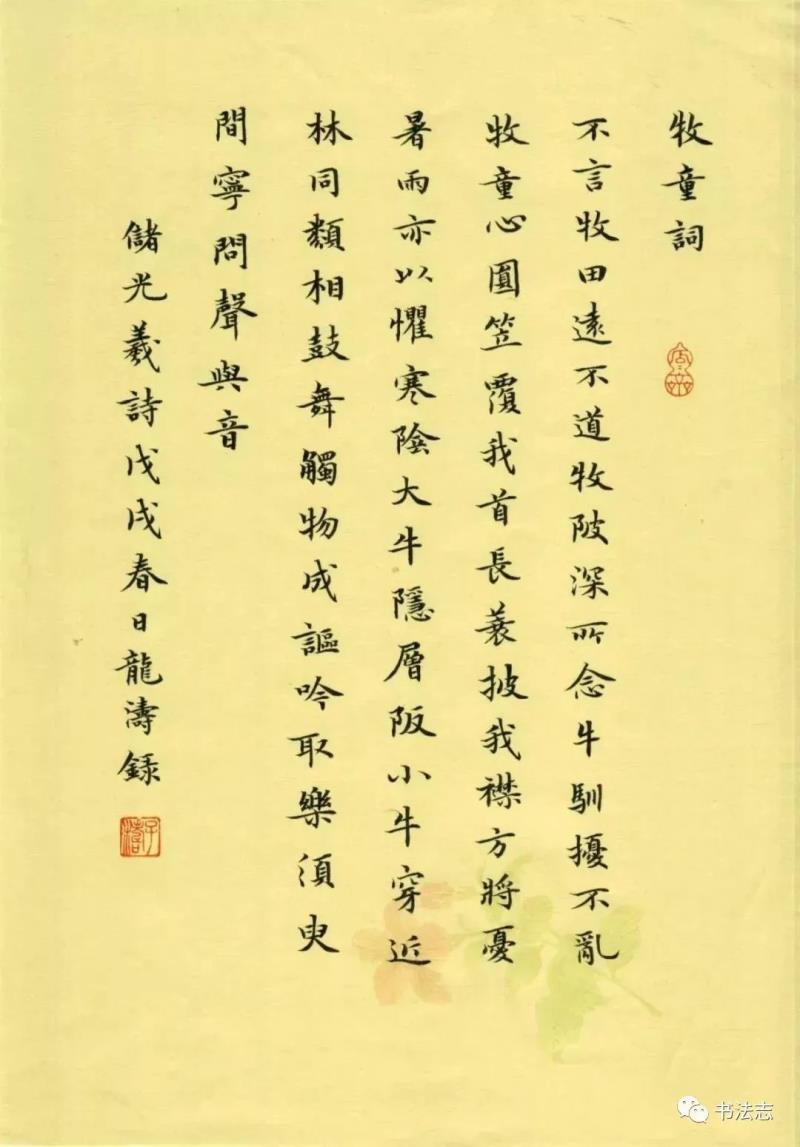 牧童詞
不言牧田遠不道牧陂深所念牛馴擾不亂
牧童心圓笠覆我首長蓑披我襟方將憂
暑雨亦以懼寒陰大牛隱層阪小牛穿近
林同類相鼓舞觸物成謳吟取樂須臾
間寧問聲與音
儲光羲詩戊戌春日龍濤錄
书法志